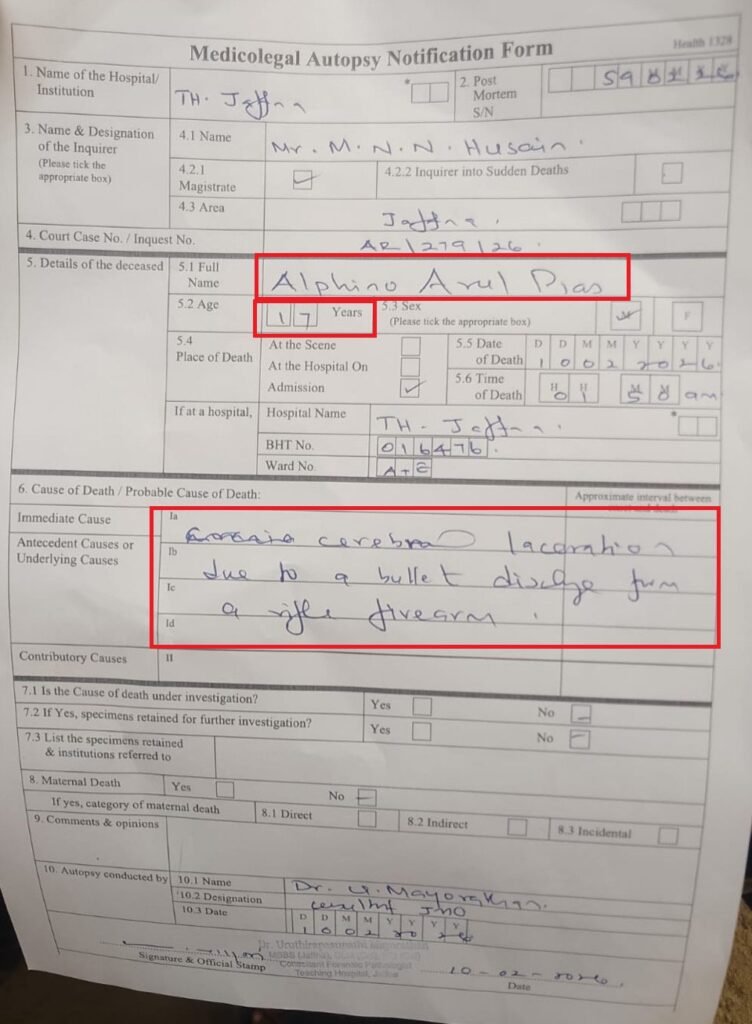 Health 1328
Medicolegal Autopsy Notification Form
1. Name of the Hospital/ Institution
TH. Jaffna
2. Post Mortem S/N
3. Name & Designation of the Inquirer (Please tick the appropriate box)
4.1 Name
Mr. M. N. N. Husain.
4.2.1 Magistrate
4.2.2 Inquirer into Sudden Deaths
4.3 Area
Jaffna.
4. Court Case No. / Inquest No.
AR/279/26.
5. Details of the deceased
5.1 Full Name
Alphino Arul Dias
5.2 Age
17 Years
5.3 Sex
(Please tick the appropriate box)
F
5.4 Place of Death
At the Scene
At the Hospital On
Admission
5.5 Date of Death
D D M M Y Y Y Y
1 0 0 2 2 0 2 6
5.6 Time of Death
H H
01 58 am
If at a hospital,
Hospital Name
TH. Jaffna.
BHT No.
016476.
Ward No.
6. Cause of Death / Probable Cause of Death:
Approximate interval between
Immediate Cause
Ia
cerebral laceration
Antecedent Causes or Underlying Causes
Ib
due to a bullet form
Ic
a rifle firearm.
Id
Contributory Causes
II
7.1 Is the Cause of death under investigation?
Yes
No
7.2 If Yes, specimens retained for further investigation?
Yes
No
7.3 List the specimens retained & institutions referred to
8. Maternal Death
Yes
No
If yes, category of maternal death
8.1 Direct
8.2 Indirect
8.3 Incidental
9. Comments & opinions
10. Autopsy conducted by
10.1 Name
Dr. U. Mayorathan.
10.2 Designation
JMO
10.3 Date
D D M M Y Y Y Y
1 0 0 2 20 26
Signature & Official Stamp
MBBS (Jaffna),
Consultant Forensic Pathologist
Teaching Hospital, Jaffna
10-02-2026.
Date